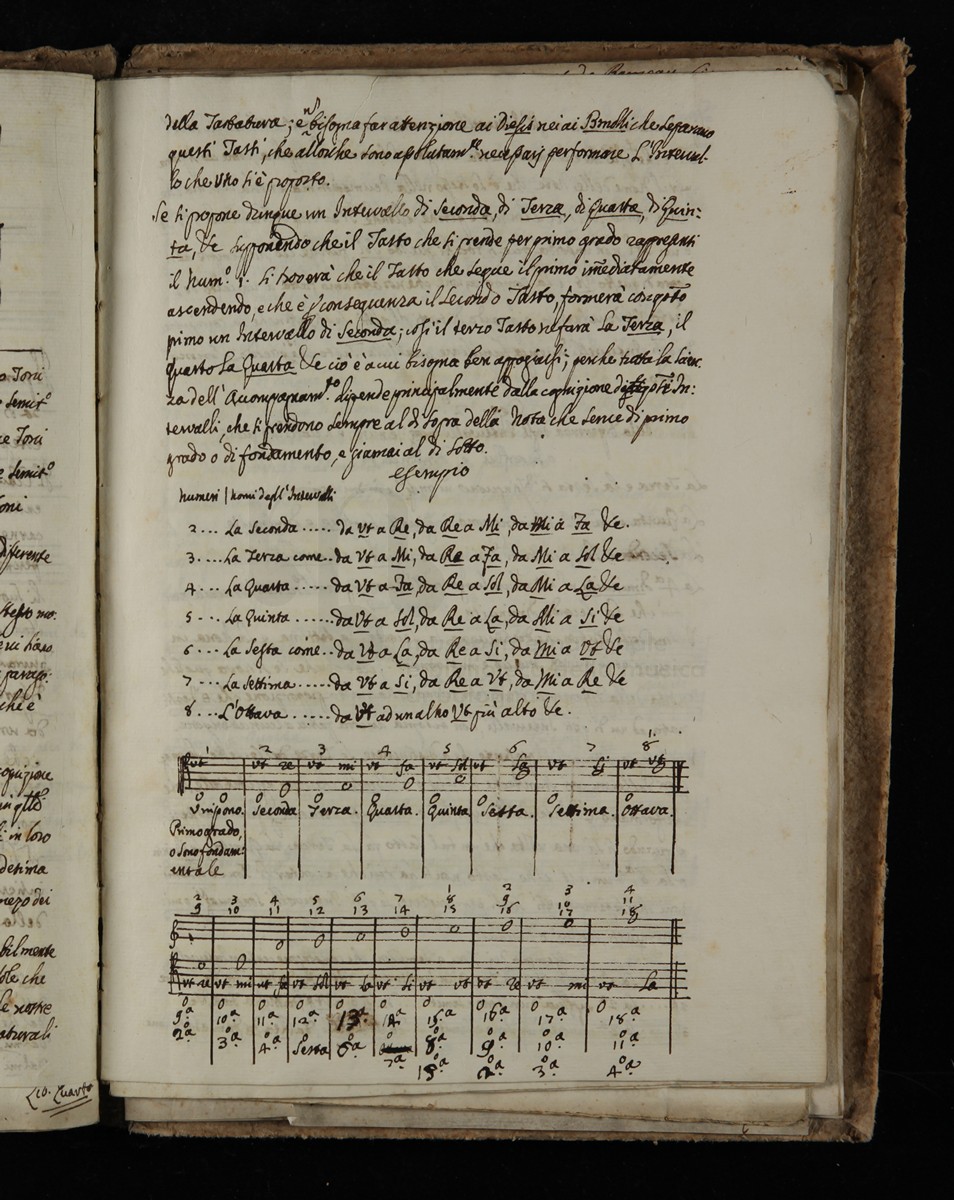 della Tastatura; e nō bisogna far attenzione ai Diesis nei ai Bmolli che separano
questi Tasti, che allorche sono assolutam.te necessarj per formare l'Interval-
lo che Uno si è proposto.
Se si propone dunque un Intervallo di Seconda, di Terza, di Quarta, di Quin:
ta, &c supponendo che il Tasto che si prende per primo grado rappresenti
il Num.o 1. si troverà che il Tasto che segue il primo imēdiatamente
ascendendo, e che è p conseguenza il Secondo Tasto, formerà con qsto
primo un Intervallo di Seconda; così il terzo Tasto ne farà La Terza, il
quarto La Quarta &c ciò è a cui bisogna ben appogiarsi; perche tutta la Scien:
za dell'Acompagnam.to dipende principalmente dalla cognizione di In:
tervalli, che si prendono sempre al di sopra della Nota che serve di primo
grado o di fondamento, e giamai al di sotto.
Esempio
Numeri | Nomi degl'Intervalli
2 ... La Seconda ..... da Ut a Re, da Re a Mi, da Mi à Fa &c.
3 .... La Terza come .. da Ut a Mi, da Re a Fa, da Mi a Sol &c
4 .... La Quarta ...... da Ut a Fa, da Re a Sol, da Mi a La &c
5 ... La Quinta ...... da Ut a Sol, da Re a La, da Mi a Si &c
6 ... La Sesta come .. da Ut a La, da Re a Si, da Mi a Ut &c
7 ... La Settima ..... da Ut a Si, da Re a Ut, da Mi a Re &c
8 ... L'Ottava ..... da Ut ad un altro Ut più alto &c.
1.
1 2 3 4 5 6 7 8
ut ut re ut mi ut fa ut sol ut la ut si ut ut
Unissono. Seconda Terza. Quarta. Quinta Sesta. Settima. Ottava.
Primo grado,
o Sono fondam:
entale
1 2 3 4
2 3 4 5 6 7 8 9 10 11
9 10 11 12 13 14 15 16 17 18
ut re ut mi ut fa ut sol ut la ut si ut ut ut re ut mi ut la
9.a 10.a 11.a 12.a 13.a 14.a 15.a 16.a 17.a 18.a
2.a 3.a 4.a Sesta 6.a 8.a 9.a 10.a 11.a
7.a 15.a 2.a 3.a 4.a
o Toni
Semit.o
ce Toni
Semit.o
oni
differente
che è
gnizione
in qtti
i in loro
desima
mezo dei
bilmente
ole che
le nostre
aturali
Quarto